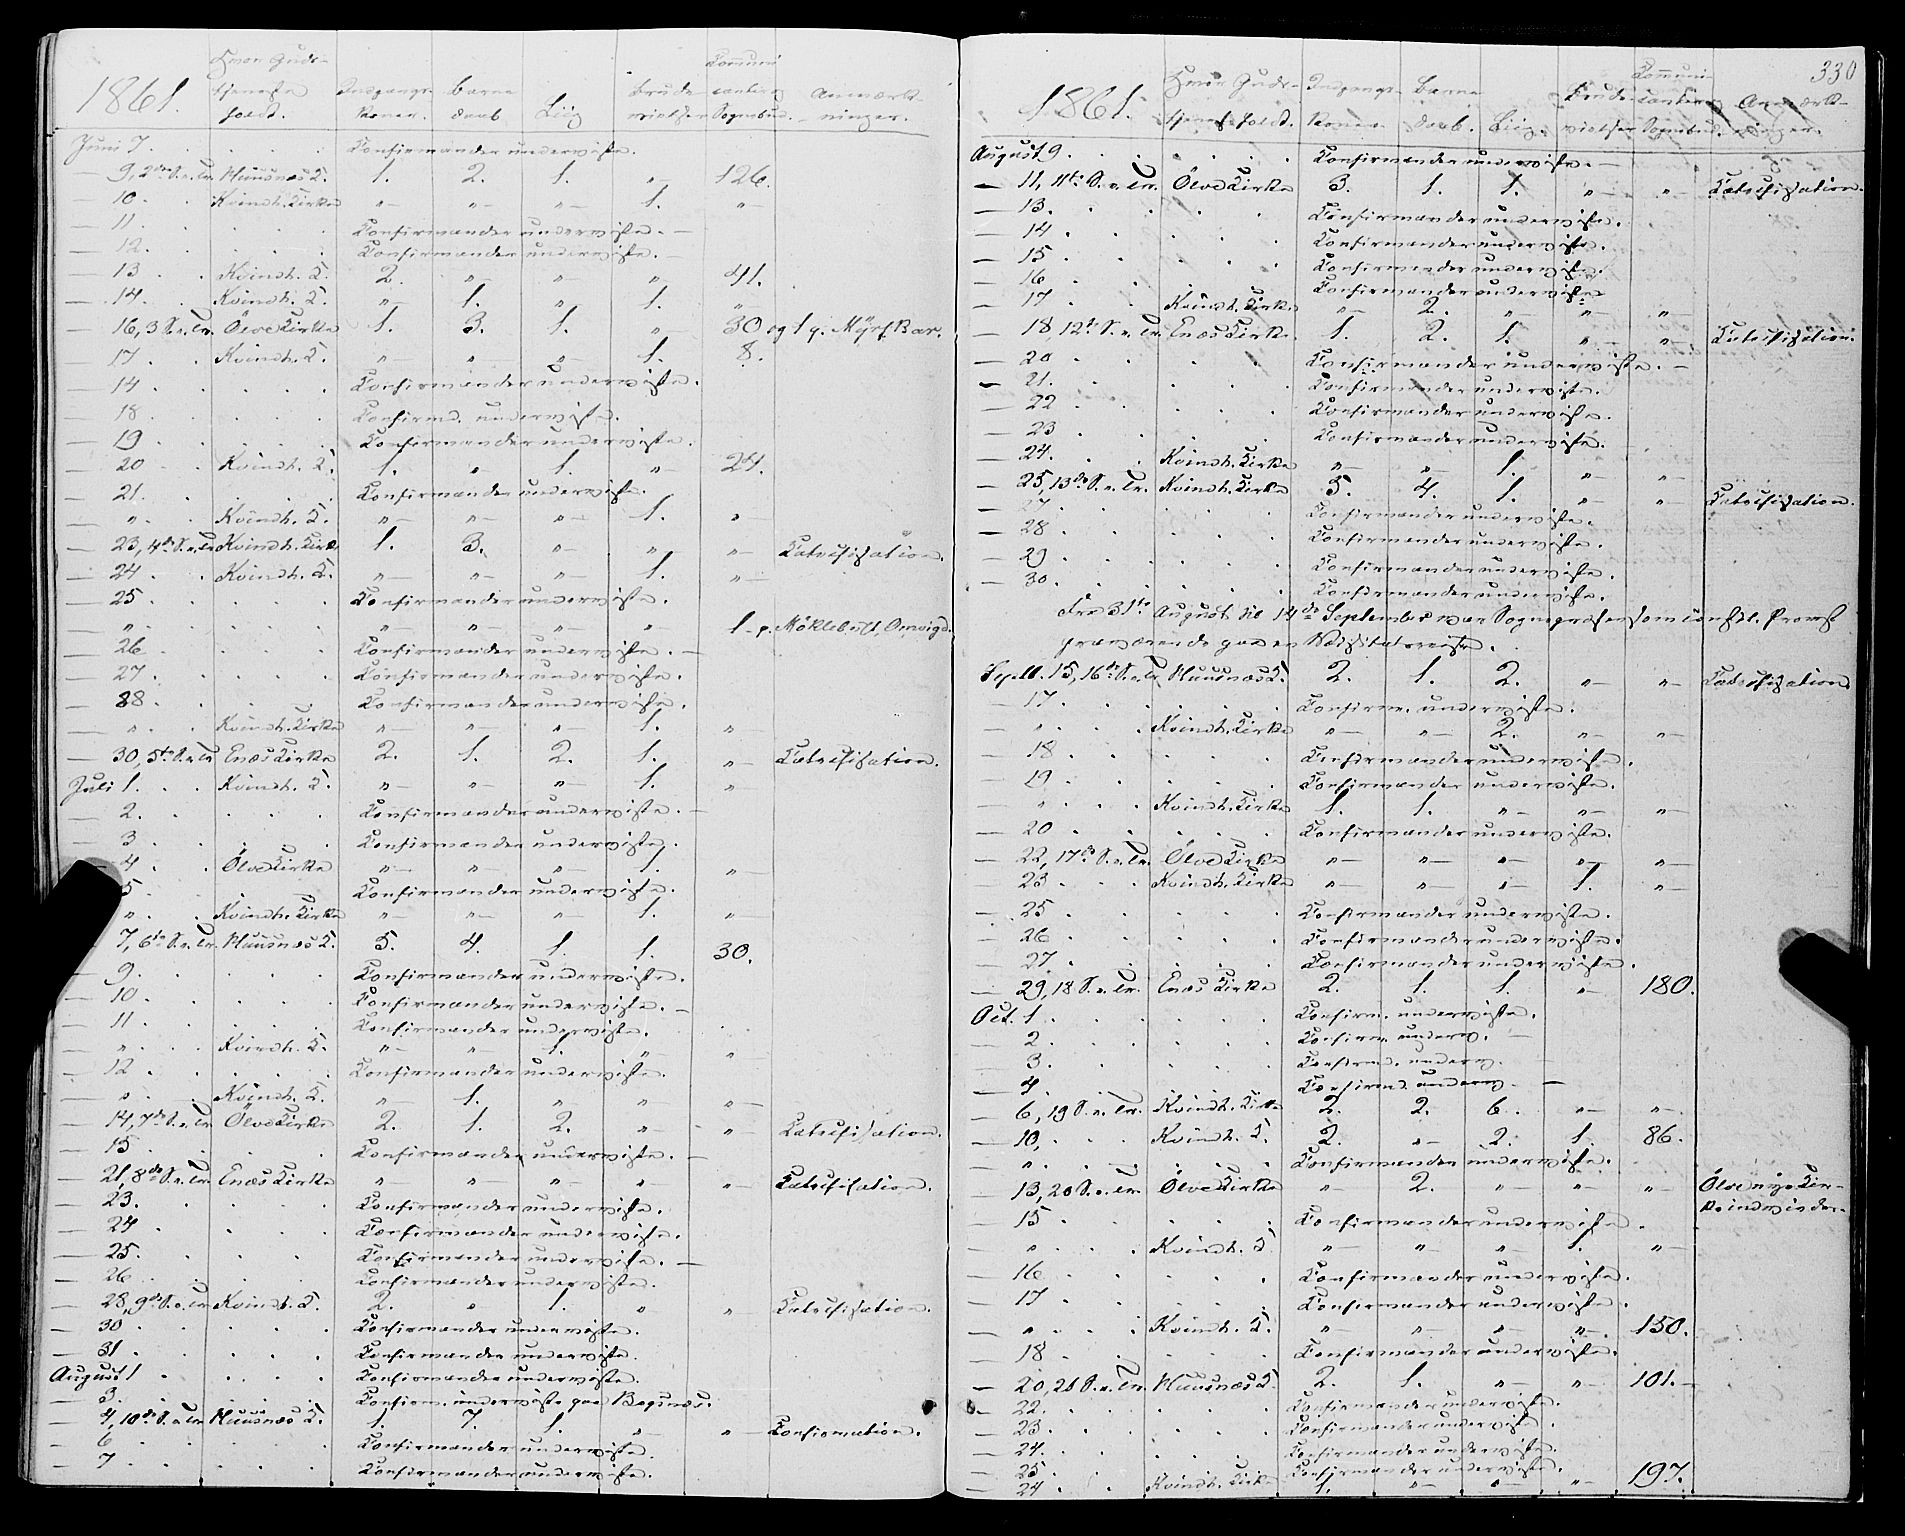 1861.
Hvor Guds-
tjeneste
holdt.
Indgangs-
koner.
Barne
daab
Liig
Brude
vielser
Communi
canter og
Sognebud.
Anmærk-
ninger.
Juni 7 . . . . Confirmander underviste.
— 9, 2den S. e. Tr. Huusnæs K. 1. 2. 1. „ 126.
— 10. . Kvindh. Kirke „ „ „ 1. „
— 11 . . . . Confirmander underviste. —
— 12. . . . . Confirmander underviste. —
— 13 . . Kvindh. K. 2. „ „ „ 41.
— 14. . Kvindh. K. „ 1. „ 1. „
— 16, 3 S. e. Tr. Ölve Kirke 1. 3. 1. „ 30 og 1 p.
— 17 . . Kvindh. K. „ „ „ 1. 8.
— 14 . . . . Confirmander underviste.
— 18 . . . . Confirmd. underviste.
— 19 . . . . Confirmander underviste.
— 20 . . Kvindh. K. 1. „ 1. „ 24.
— 21. . . . . Confirmander underviste.
— „ . . Kvindh. K. „ „ „ 1. „
— 23, 4de S. e. Tr. Kvindh. Kirke 1. 3. „ „ „ Catechisation.
— 24 . . Kvindh. K. „ „ „ 1. „
— 25 . . . . Confirmander underviste.
— „ . . . . „ „ „ „ 1 p. Möklebust, Omvigd.
— 26 . . . . Confirmander underviste. —
— 27. . . . . Confirmander underviste.
— 28. . . . Confirmander underviste.
— „ . . Kvindh. Kirke „ „ „ 1. „
— 30, 5te S. e. Tr. Enæs Kirke 2. 1. 2. 1. „ Catechisation.
Juli 1. . . Kvindh. K. „ „ „ 1. „
— 2. . . . . Confirmander underviste. —
— 3 . . . . Confirmander underviste.
— 4 . . Ölve Kirke „ „ „ 1. „
5 . . . . Confirmander underviste.
„ . . Kvindh. Kirke „ „ „ 1. „
7, 6te S. e. Tr. Huusnæs K. 5. 4. 1. 1. 30.
— 9. . . . . Confirmander underviste.
— 10. . . . . Confirmander underviste. —
— 11 . . . . Confirmander underviste.
— „ . . Kvindh. K. „ „ 1. „ „
— 12 . . . . Confirmander underviste.
— „ . . Kvindh. K. „ 1. „ „ „
— 14, 7de S. e. Tr. Ölve Kirke 2. 1. 2. „ „ Catechisation.
— 15 . . . Confirmander underviste. —
— 21, 8de S. e. Tr. Enæs Kirke „ „ „ „ „ Catechisation.
— 23. . . . . Confirmander underviste.
— 24 . . . . Confirmander underviste.
— 25. . . . . Confirmander underviste. —
— 26 . . . . Confirmander underviste.
— 28, 9de S. e. Tr. Kvindh. K. 2. „ 1. „ „ Catechisation.
— 30 . . . . Confirmander underviste.
— 31 . . . . Confirmander underviste.
August 1 . . . . Confirmander underviste.
— 3. . . . . Confirm. underviste paa Bogsnæs.
— 4, 10de S. e. Tr. Huusnæs K. 1. 7. 1. „ „ Confirmation.
— 6 . . . . Confirmander underviste.
— 7 . . . . Confirmander underviste.
330
1861.
Hvor Guds-
tjeneste holdt.
Indgangs-
koner
Barne
daab.
Liig.
Brude-
vielser
Communi-
canter og
Sognebud.
Anmærk-
ninger.
August 9 . . . . . Confirmander underviste. —
— 11, 11te S. e. Tr. Ölve Kirke 3. 1. 1. „ „ Catechisation.
— 13. . . . . Confirmander underviste.
— 14 . . . . Confirmander underviste.
— 15 . . . . Confirmander underviste.
— 16 . . . . Confirmander underviste
— 17 . . Kvindh. Kirke „ 2. „ „ „
— 18, 12te S. e. Tr. Enæs Kirke. 1. 2. 1. „ „ Catechisation.
— 20 . . . . Confirmander underviste. —
— 21. . . . . Confirmander underviste.
— 22 . . . . Confirmander underviste.
— 23 . . . . Confirmander underviste.
— 24. . . Kvindh. Kirke „ „ 1. „ „
— 25, 13de S. e. Tr. Kvindh. Kirke 5. 4. 1. „ „ Catechisation.
— 27 . . . . Confirmander underviste.
— 28 . . . . Confirmander underviste.
— 29 . . . . Confirmander underviste.
— 30. . . . . Confirmander underviste.
Fra 31te August til 14de September var Sognepræsten som constit. Provst
fraværende paa en Visitatsreise.
Septb. 15, 16de S. e. Tr. Huusnæs K. 2. 1. 2. „ „ Catechisation
— 17. . . . . Confirm. underviste.
— „ . . Kvindh. Kirke „ „ 2. „ „
— 18 . . . . Confirmander underviste.
— 19 . . . . Confirmander underviste.
— „ . . Kvindh. Kirke 1. 1. „ „ „
— 20 . . . . Confirmander underviste.
— 22, 17de S. e. Tr. Ölve Kirke „ „ „ „ „
— 23 . . Kvindh. Kirke „ „ „ 1. „
— 25 . . . . Confirmander underviste.
— 26 . . . . Confirmander underviste.
— 27. . . . . Confirmander underviste.
— 29, 18 S. e. Tr. Enæs Kirke 2. 1. 1. „ 180.
Oct. 1 . . . . Confirm. underviste.
— 2 . . . . Confirm. underv. —
— 3 . . . . Confirmd. underv. —
— 4 . . . . Confirmd. underv. —
— 6, 19 S. e. Tr. Kvindh. Kirke 2. 2. 6. „ „
— 10, . . Kvindh. K. 2. „ 2. 1. 86.
— „ . . . . Confirmander underviste.
— 13, 20 S. e. Tr. Ölve Kirke „ 2. „ „ „ Ölve nye Kir-
ke indvies der.
— 15 . . . . Confirmander underviste.
— „ . . Kvindh. K. „ „ „ 1. „
— 16 . . . . Confirmander underviste.
— 17 . . . . Confirmander underviste.
— „ . . Kvindh. K. „ „ „ „ 150.
— 18 . . . . Confirmander underviste.
— 20, 21 S. e. Tr. Huusnæs K. 2. 1. „ „ 101.
— 22 . . . . Confirmander underviste.
— 23 . . . . Confirmander underviste.
— 24. . . . . Confirmander underviste.
— 25 . . . . Confirmander underviste.
— 24 . . Kvindh. Kirke 1. „ „ „ 197.